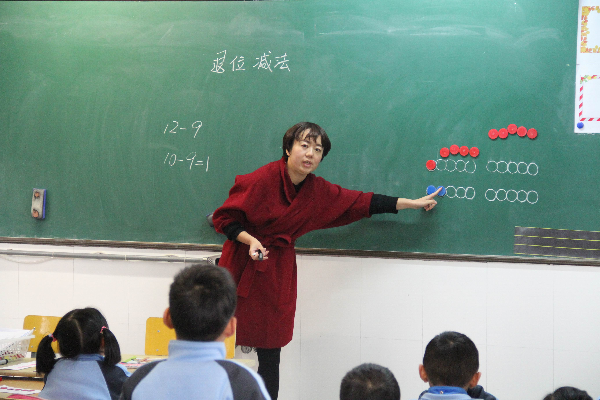 退位减法
12-9
10-9=1